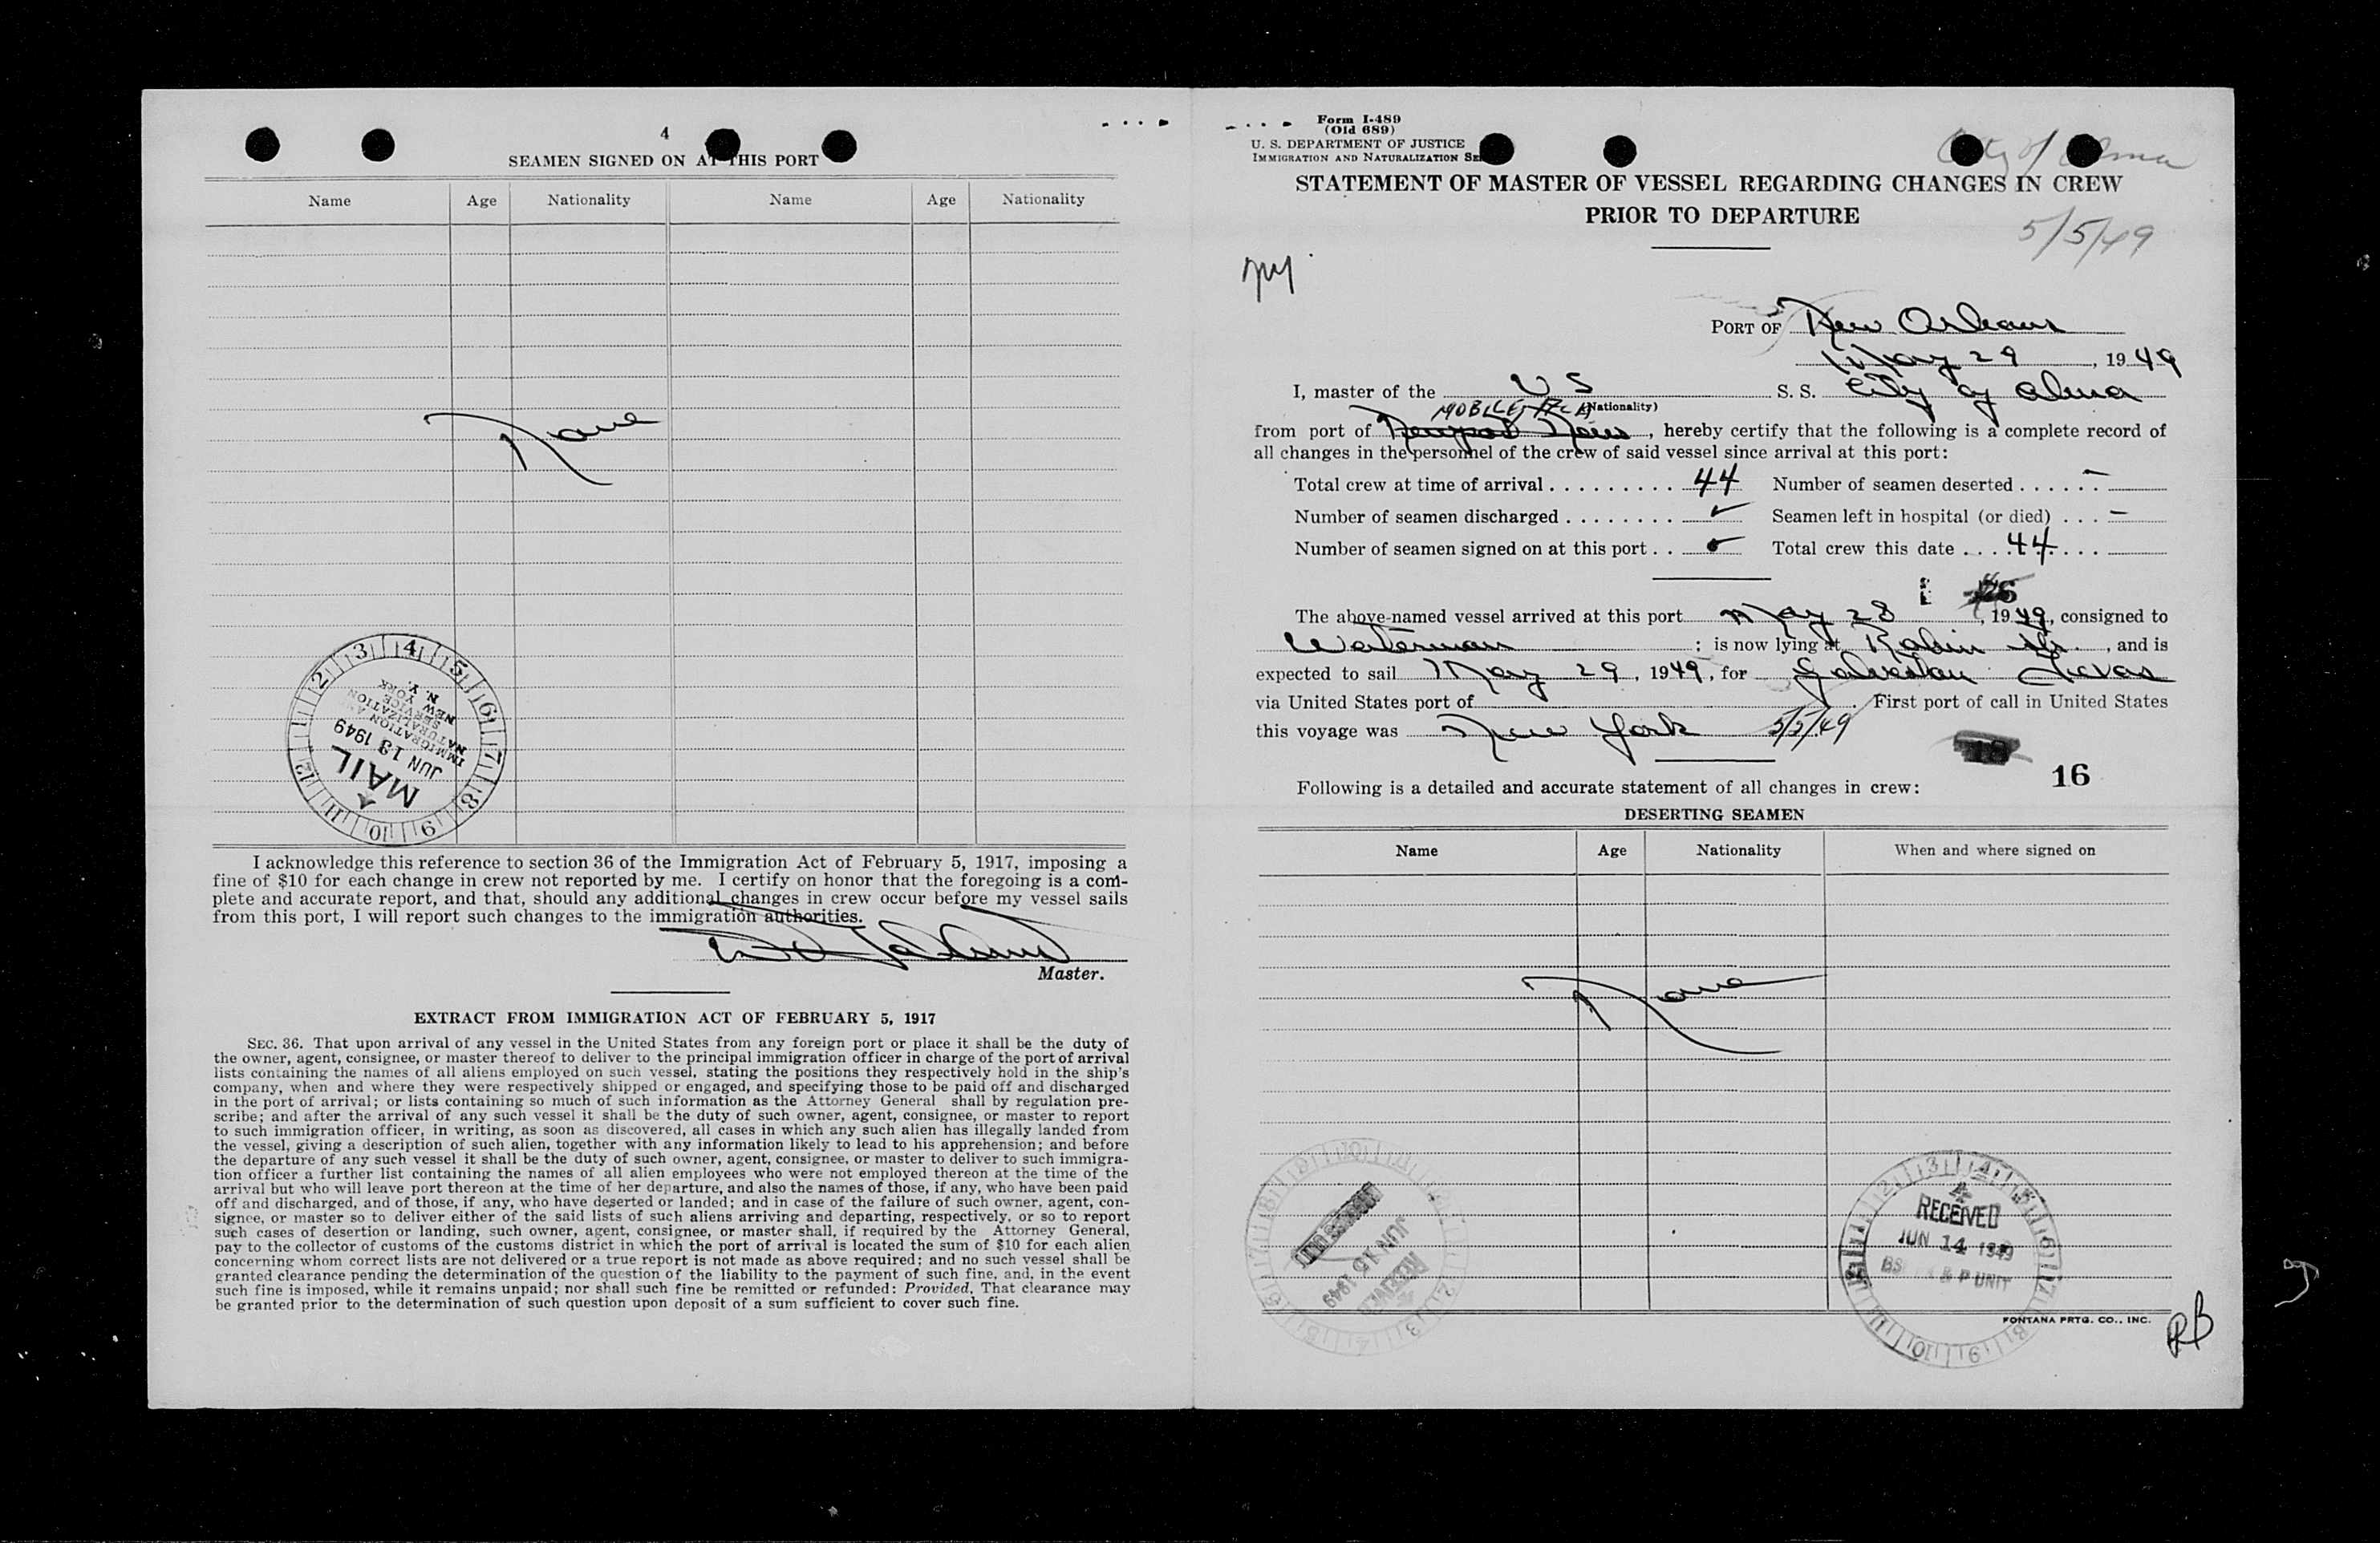 4
SEAMEN SIGNED ON AT THIS PORT
Name Age Nationality Name Age Nationality
None
4 5 6 7 8 9 10 11 12 1 2 3
MAIL
JUN 13 1949
IMMIGRATION AND
NATURALIZATION
SERVICE
NEW YORK
N. Y.
I acknowledge this reference to section 36 of the Immigration Act of February 5, 1917, imposing a
fine of $10 for each change in crew not reported by me. I certify on honor that the foregoing is a com-
plete and accurate report, and that, should any additional changes in crew occur before my vessel sails
from this port, I will report such changes to the immigration authorities.
Master.
EXTRACT FROM IMMIGRATION ACT OF FEBRUARY 5, 1917
SEC. 36. That upon arrival of any vessel in the United States from any foreign port or place it shall be the duty of
the owner, agent, consignee, or master thereof to deliver to the principal immigration officer in charge of the port of arrival
lists containing the names of all aliens employed on such vessel, stating the positions they respectively hold in the ship's
company, when and where they were respectively shipped or engaged, and specifying those to be paid off and discharged
in the port of arrival; or lists containing so much of such information as the Attorney General shall by regulation pre-
scribe; and after the arrival of any such vessel it shall be the duty of such owner, agent, consignee, or master to report
to such immigration officer, in writing, as soon as discovered, all cases in which any such alien has illegally landed from
the vessel, giving a description of such alien, together with any information likely to lead to his apprehension; and before
the departure of any such vessel it shall be the duty of such owner, agent, consignee, or master to deliver to such immigra-
tion officer a further list containing the names of all alien employees who were not employed thereon at the time of the
arrival but who will leave port thereon at the time of her departure, and also the names of those, if any, who have been paid
off and discharged, and of those, if any, who have deserted or landed; and in case of the failure of such owner, agent, con-
signee, or master so to deliver either of the said lists of such aliens arriving and departing, respectively, or so to report
such cases of desertion or landing, such owner, agent, consignee, or master shall, if required by the Attorney General,
pay to the collector of customs of the customs district in which the port of arrival is located the sum of $10 for each alien
concerning whom correct lists are not delivered or a true report is not made as above required; and no such vessel shall be
granted clearance pending the determination of the question of the liability to the payment of such fine, and, in the event
such fine is imposed, while it remains unpaid; nor shall such fine be remitted or refunded: Provided, That clearance may
be granted prior to the determination of such question upon deposit of a sum sufficient to cover such fine.
Form I-489
(Old 689)
U. S. DEPARTMENT OF JUSTICE
IMMIGRATION AND NATURALIZATION SE
City of Alma
STATEMENT OF MASTER OF VESSEL REGARDING CHANGES IN CREW
PRIOR TO DEPARTURE
5/5/49
NY
PORT OF New Orleans
May 29, 1949
I, master of the U S S. S. City of Alma
(Nationality)
MOBILE, ALA
from port of Newport News, hereby certify that the following is a complete record of
all changes in the personnel of the crew of said vessel since arrival at this port:
Total crew at time of arrival 44 Number of seamen deserted –
Number of seamen discharged ✓ Seamen left in hospital (or died) –
Number of seamen signed on at this port Total crew this date 44
The above-named vessel arrived at this port May 28, 1949, consigned to
Waterman; is now lying at Robin St., and is
expected to sail May 29, 1949, for Galveston Texas
via United States port of . First port of call in United States
this voyage was New York 5/5/49
16
Following is a detailed and accurate statement of all changes in crew:
DESERTING SEAMEN
Name Age Nationality When and where signed on
None
RECEIVED
JUN 15 1949
RECEIVED
JUN 14 1949
B P UNIT
FONTANA PRTG. CO., INC.
RB